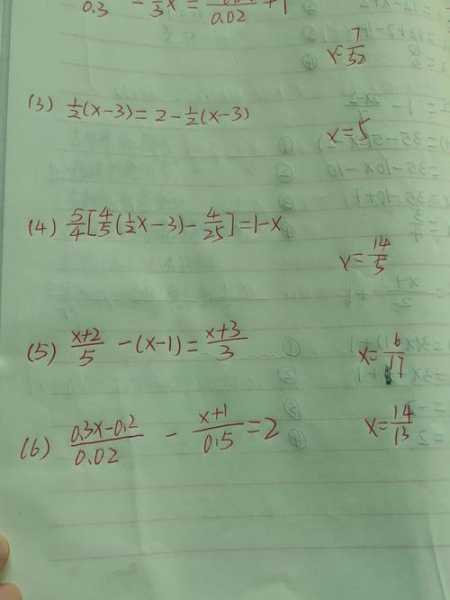 0.3 - 1/3x = 0.02 + 1
x=7/52
(3) 1/2(x-3)=2-1/2(x-3)
x=5
(4) 5/4[4/5(1/2x-3)-4/25]=1-x
x=14/5
(5) x+2/5 -(x-1)= x+3/3
x=6/17
(6) 0.3x-0.2/0.02 - x+1/0.5 =2
x=14/13